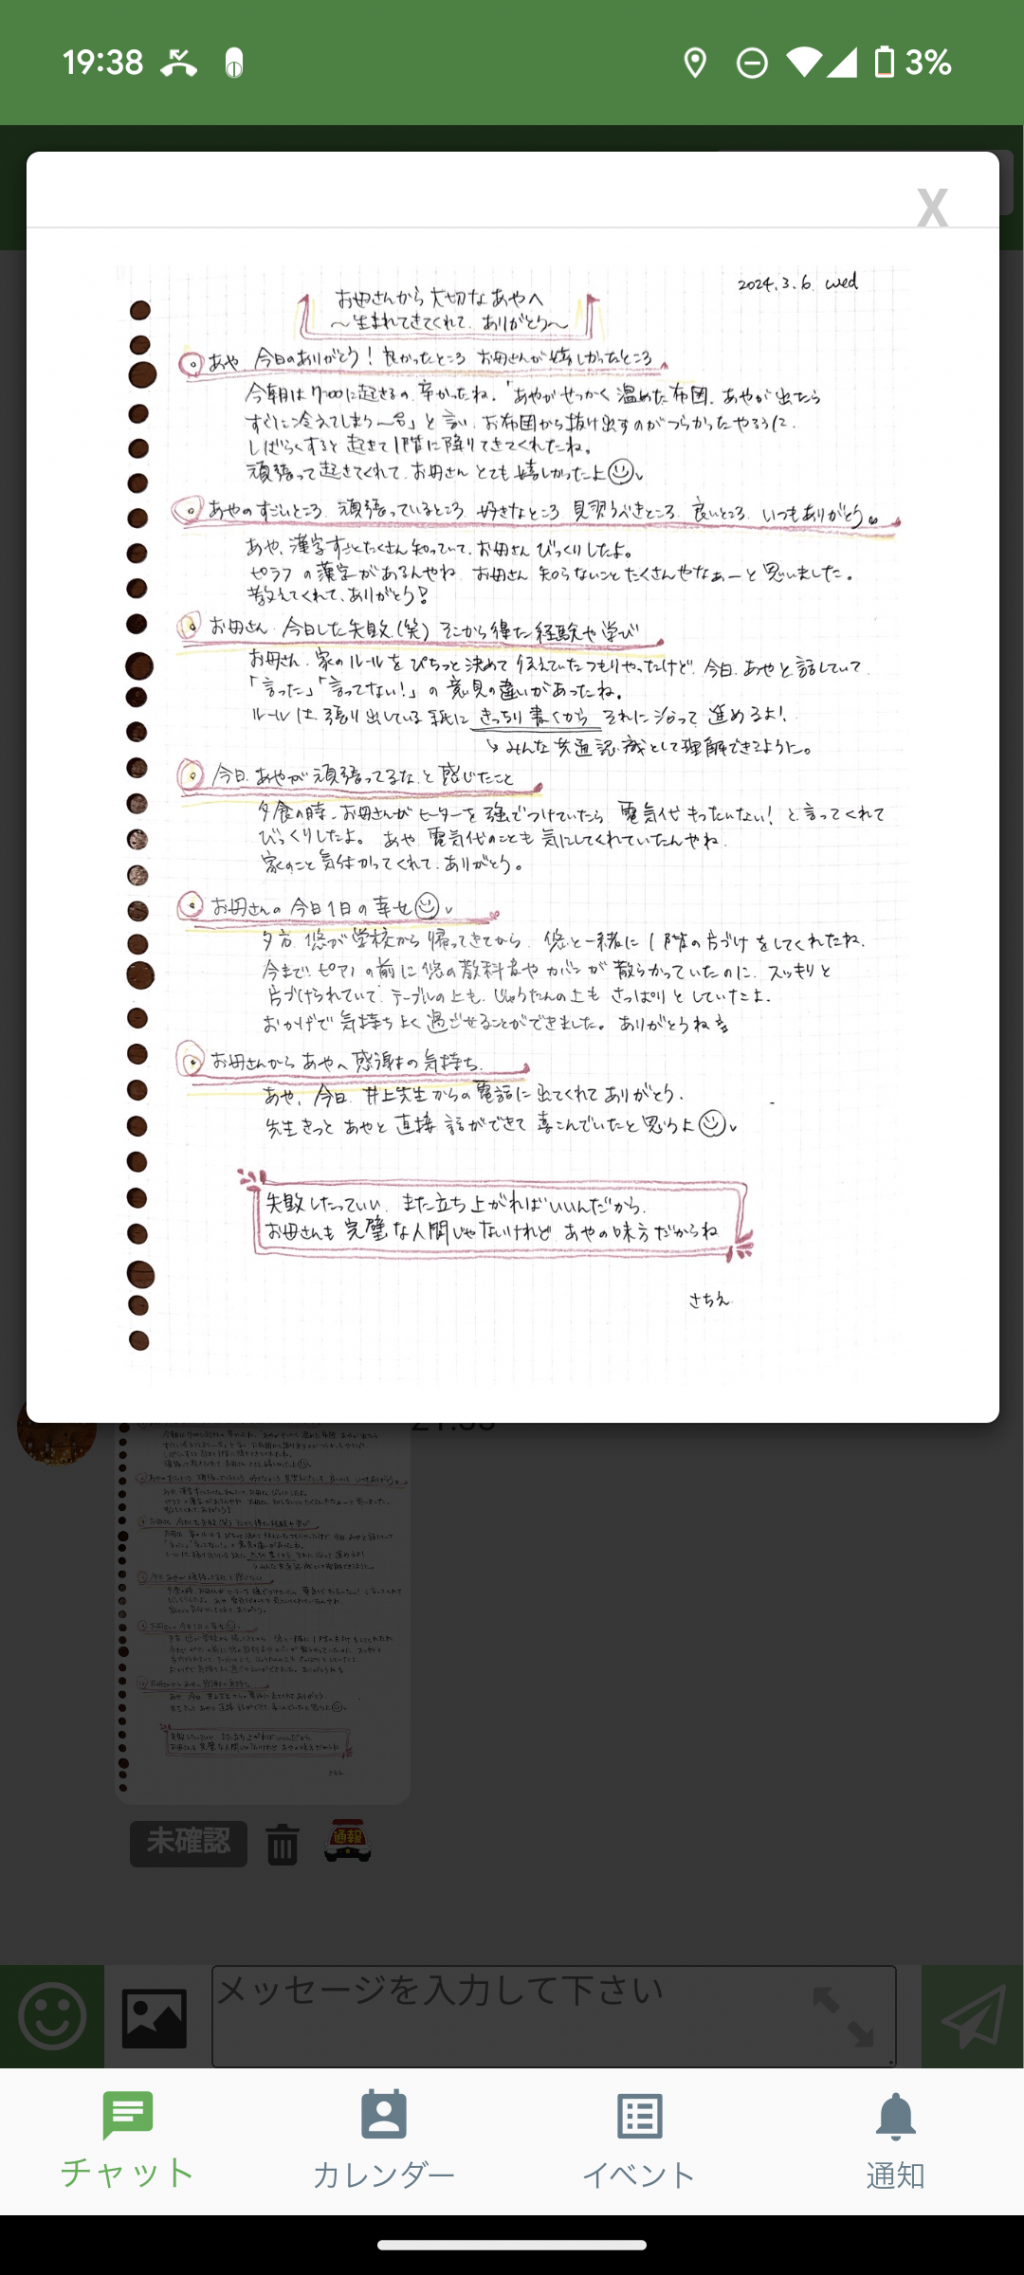 19:38
3%
X
2024.3.6 wed
お母さんから大切なあやへ
〜生まれてきてくれて、ありがとう〜
あや 今日のありがとう！良かったところ お母さんが嬉しかったところ
今朝は7:00に起きるの、辛かったね。「あやがせっかく温めた布団、あやが出たら
すぐに冷えてしまう〜る」と言い、お布団から抜け出すのがつらかったやろうに、
しばらくすると起きて1階に降りてきてくれたね。
頑張って起きてくれて、お母さんとても嬉しかったよ
あやのすごいところ 頑張っているところ 好きなところ 見習うべきところ 良いところ いつもありがとう。
あや、漢字すごくたくさん知っていて、お母さんびっくりしたよ。
ピラフの漢字があるんやね お母さん知らないことたくさんやなぁーと思いました。
教えてくれて、ありがとう！
お母さん 今日した失敗(笑) そこから得た経験や学び
お母さん、家のルールをぴちっと決めて伝えていたつもりやったけど、今日、あやと話していて、
「言った」「言ってない！」の意見の違いがあったね。
ルールは、張り出している紙にきっちり書くから それに沿って進めるよ！
↳みんな共通認識として理解できるように。
今日、あやが頑張ってるな、と感じたこと
夕食の時、お母さんがヒーターを強でつけていたら 電気代もったいない！と言ってくれて
びっくりしたよ。 あや、電気代のことも気にしてくれていたんやね
家のこと気付かってくれて、ありがとう。
お母さんの今日1日の幸せ
夕方、悠が学校から帰ってきてから、悠と一緒に1階の片づけをしてくれたね。
今まで、ピアノの前に悠の教科書やカバンが散らかっていたのに、スッキリと
片づけられていて、テーブルの上も、じゅうたんの上も さっぱりとしていたよ。
おかげで気持ちよく過ごせることができました。ありがとうね
お母さんから あやへ 感謝の気持ち
あや、今日、井上先生からの電話に出てくれてありがとう。
先生きっと あやと直接話ができて喜こんでいたと思うよ
失敗したっていい、また立ち上がればいいんだから、
お母さんも完璧な人間じゃないけれど あやの味方だからね
さちえ
未確認
通報
メッセージを入力して下さい
チャット
カレンダー
イベント
通知